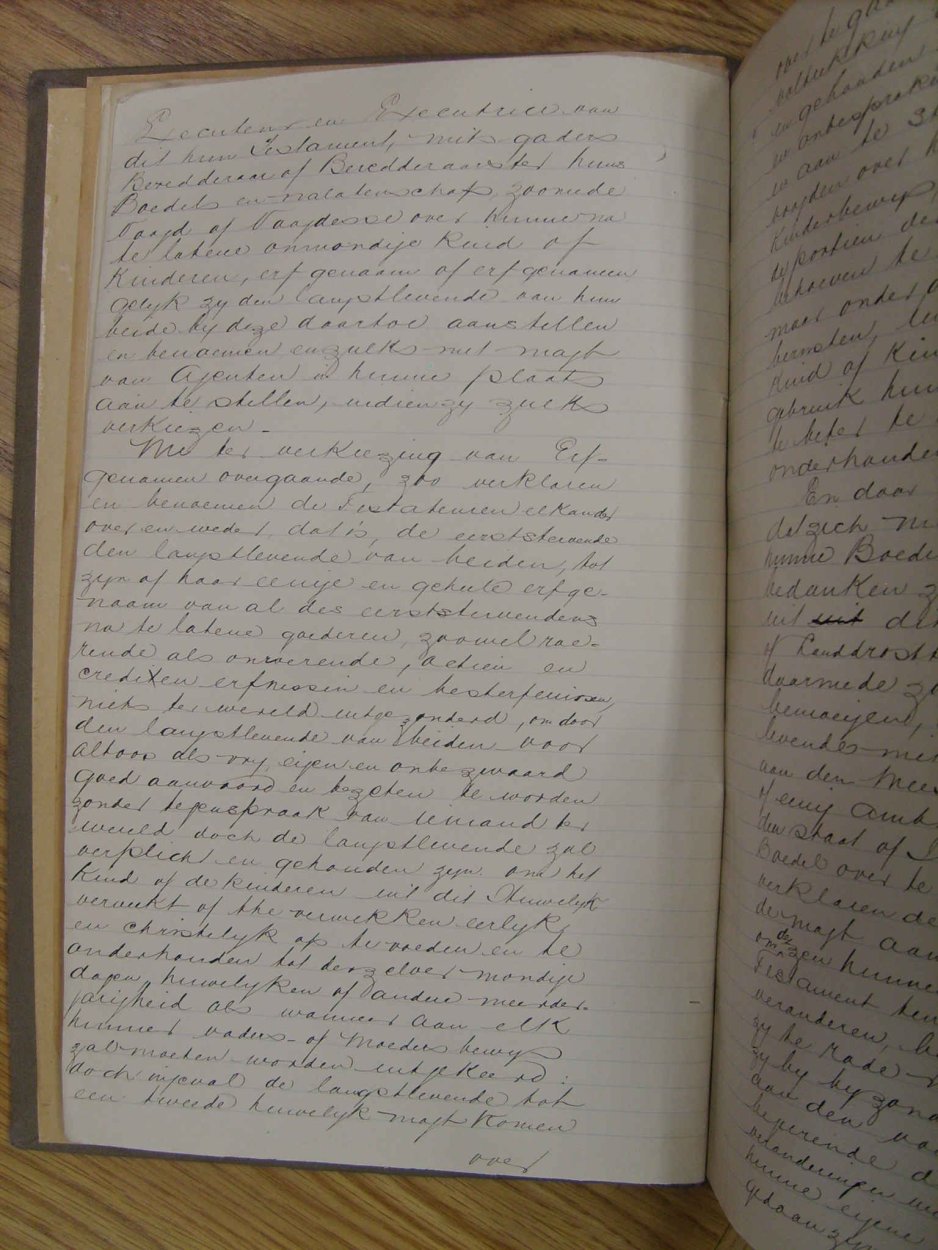 Executeur en Executrice van
dit hun Testament, mits gaders
Beredderaar of Beredderaarster huns
Boedels en nalatenschap, zoomede
Voogd of Voogdesse over hunne na
te latene onmondije kind of
Kinderen, erfgenaam of erfgenamen
gelyk zy den langstlevende van hun
beide by deze daartoe aanstellen
en benoemen en zulks met magt
van Agenten in hunne plaats
aan te stellen, indien zy zulks
verkiezen.
ter verkiezing van Erf-
genamen overgaande, zoo verklaren
en benoemen de Testateuren elkander
over en weder, dat is, de eerststervende
den langstlevende van beiden, tot
zyn of haar eenige en geheele erfge-
naam van al des eerststervendens
na te latene goederen, zoowel roe-
rende als onroerende, actien en
crediten erfnissen en besterfenissen,
niets ter wereld uitgezonderd, om door
den langstlevende van beiden voor
altoos als vry, eigen en onbezwaard
goed aanvaard en bezeten te worden
zonder tegenspraak van iemand ter
wereld doch de langstlevende zal
verplicht en gehouden zyn om het
Kind of de kinderen uit dit Huwelyk
verwekt of the verwekken eerlyk
en christelyk op te voeden en te
onderhouden tot derzelver mondije
dagen huwelyken of andere meerder-
jarigheid als wanneer aan elk
hunner vaders- of Moeders bewys
zal moeten worden uitgekeerd:
doch ingeval de langstlevende tot
een tweede huwelyk magt Komen
over
over te
voltrekking
en gehouden
en
en aan te
voogden over
Kinderbewys,
te portien der
behoeven te
maar onder
kind of kin
gebruik hun
te beter te
onderhouden
En door
dezich
hunne Boedel
bedanken
uit uit de
of Landdrost
daarmede zo
bemoeijen,
levende mi
van den Mees
of eenig amb
den staat of
Boedel over te
verklaren de
de magt aan
om dezen hunne
Testament ten
veranderen,
zy te rade
zy by byzond
aan den voo
begeerende d
veranderingen
hunne eigene
gedaan zyn